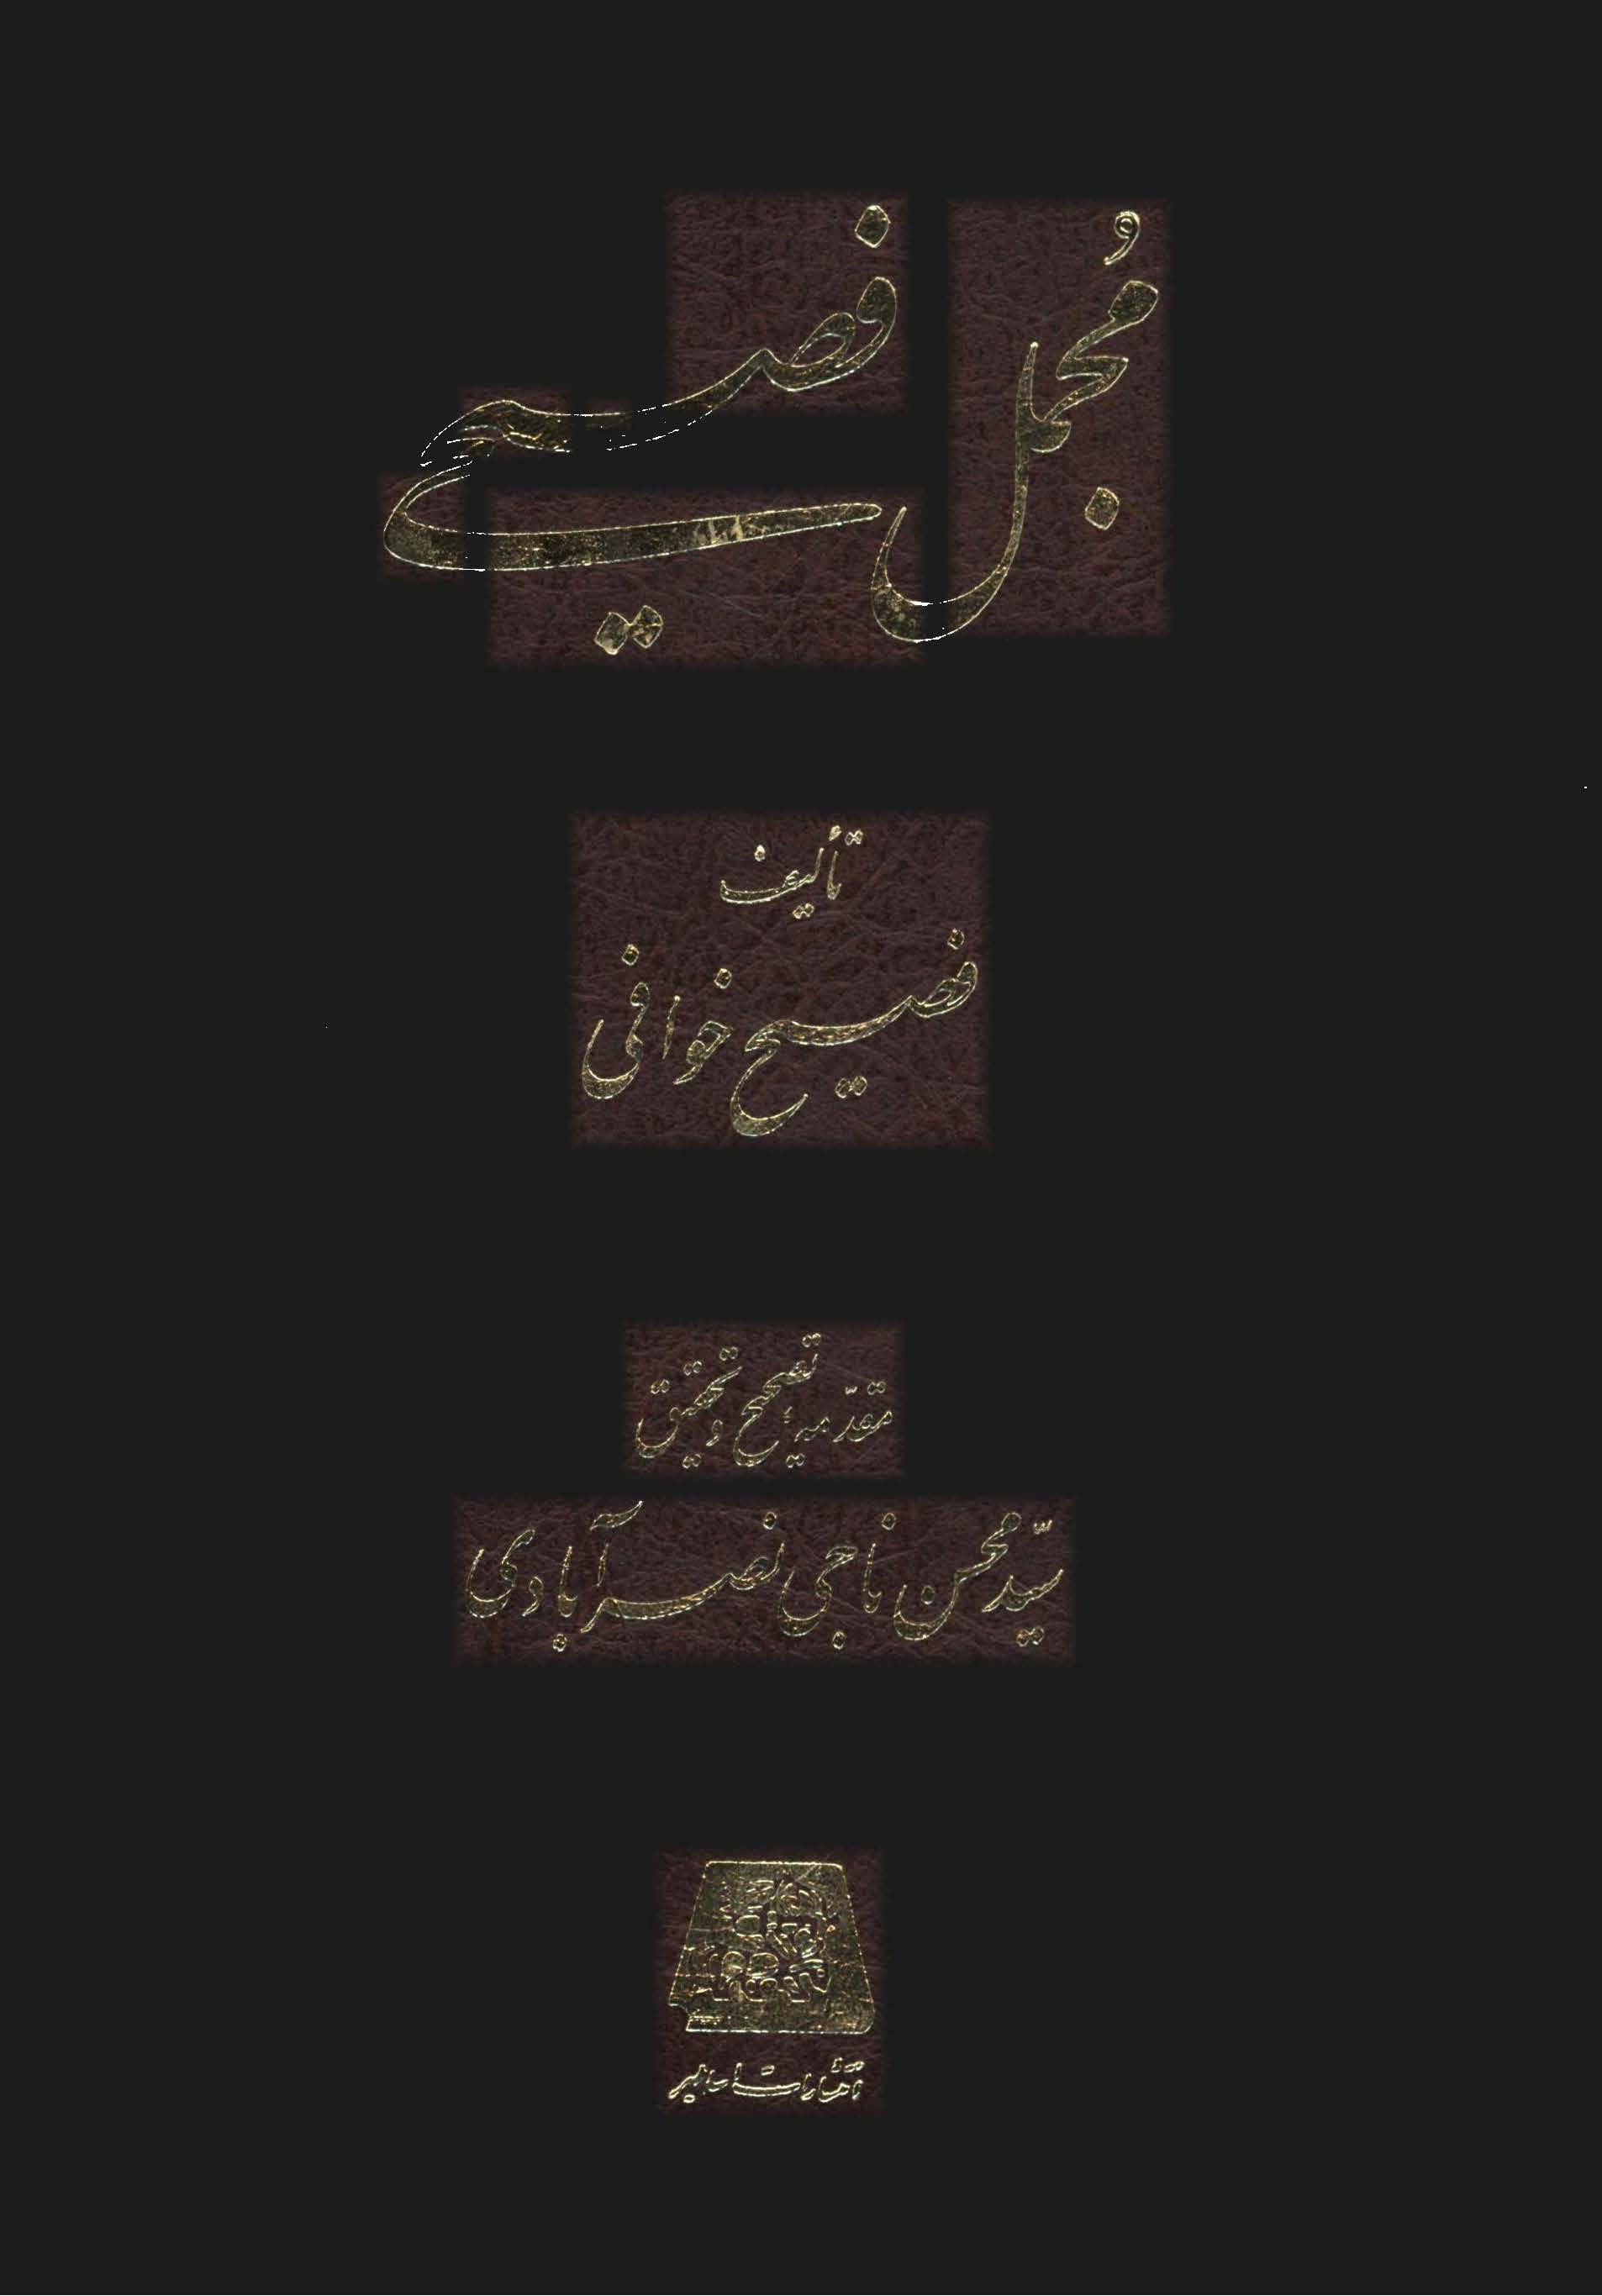 مُجمل فصیحی
تألیف
فصیح خوافی
مقدّمه، تصحیح و تحقیق
سیّد محسن ناجی نصرآبادی
انتشارات اساطیر